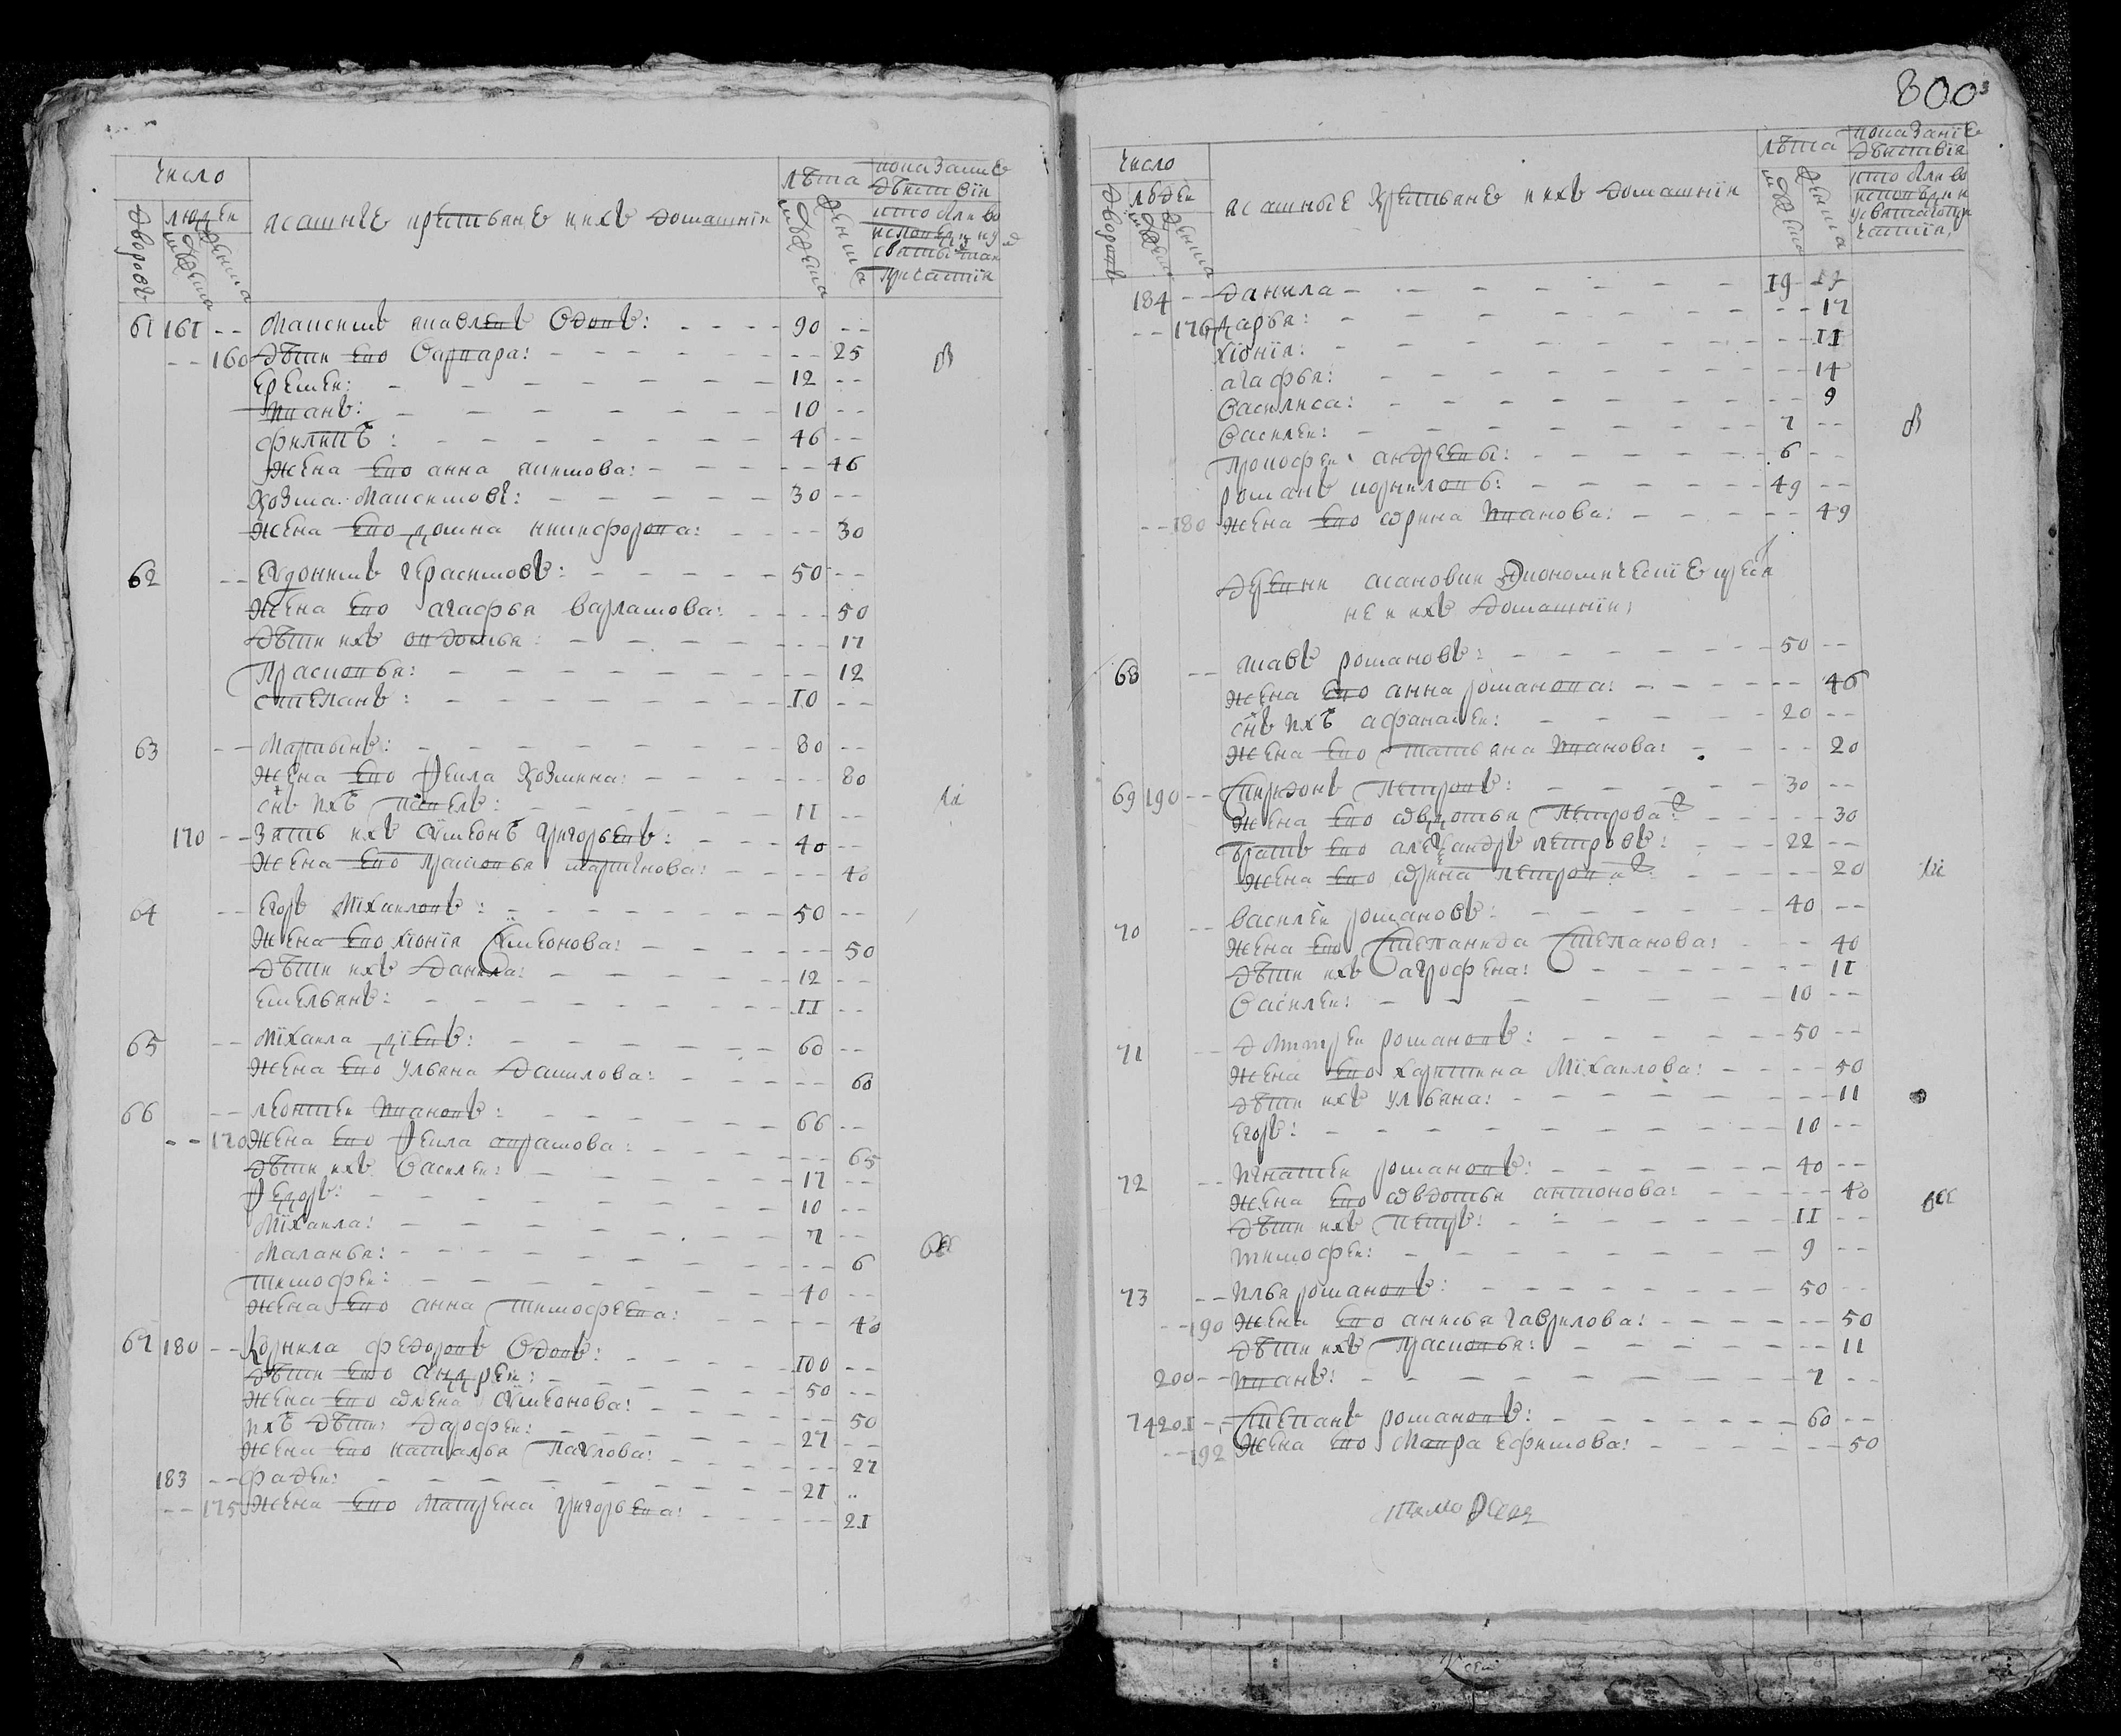 число
дворовъ
людеи
мужеска
женска
ясашные крестьяне и ихъ домашнїи
лѣта
мужеска
женска
показанїе дѣиствїя
кто были во исповеди и у святыхъ таинъ причастїи
61 161 -- Максимъ яковлевъ вдовъ: 90 --
-- 160 дѣти ево варвара: -- 25
еремеи: 12 --
иванъ: 10 --
филипъ: 46 --
жена ево анна якимова: -- 46
козма Максимовъ: 30 --
жена ево домна никифорова: -- 30
62 -- евдокимъ герасимовъ: 50 --
жена ево агафья варламова: -- 50
дѣти ихъ овдотья: -- 17
Прасковья: -- 12
степанъ: 10 --
63 -- Мартынъ: 80 --
жена ево фекла козмина: -- 80
снъ ихъ павелъ: 11 --
170 -- зять ихъ сѵмеонъ григорьевъ: 40 --
жена ево прасковья мартынова: -- 40
64 -- егоръ Мїхаиловъ: 50 --
жена ево хїонїя сѵмеонова: -- 50
дѣти ихъ данила: 12 --
емельянъ: 11 --
65 -- Мїхаила дїевъ: 60 --
жена ево ульяна данилова: -- 60
66 -- леонтеи ивановъ: 66 --
-- 170 жена ево фекла аврамова: -- 65
дѣти ихъ василеи: 17 --
федоръ: 10 --
Мїхаила: 7 --
Маланья: -- 6
тимофеи: 40 --
жена ево анна тимофеева: -- 40
67 180 -- корнила федоровъ вдовъ: 100 --
дѣти ево андреи: 50 --
жена ево олена сѵмеонова: -- 50
ихъ дѣти дорофеи: 27 --
жена ево наталья павлова: -- 27
183 -- фадеи: 21 --
-- 175 жена ево Матрена григорьева: -- 21
800
число
дворовъ
людеи
мужеска
женска
ясашные крестьяне и ихъ домашнїи
лѣта
мужеска
женска
показанїе дѣиствїя
кто были во исповѣди и у святаго причастїя
184 -- данила 19
-- 176 дарья: -- 17
хїонїя: -- 11
агафья: -- 14
василиса: -- 9
василеи: 7 --
прокофеи андреевы: 6 --
романъ корниловъ: 49 --
-- 180 жена ево орина иванова: -- 49
деревни экономическїе кресьяне и ихъ домашнїи
68 -- яковъ романовъ: 50 --
жена ево анна романова: -- 46
снъ ихъ афанасеи: 20 --
жена ево татьяна иванова: -- 20
69 190 -- спиридонъ петровъ: 30 --
жена ево овдотья петрова: -- 30
братъ ево александръ петровъ: 22 --
жена ево орина петрова: -- 20
70 -- василеи романовъ: 40 --
жена ево степанида степанова: -- 40
дѣти ихъ агрофена: -- 11
василеи: 10 --
71 -- дмитреи романовъ: 50 --
жена ево харитина Мїхаилова: -- 50
дѣти ихъ ульяна: -- 11
егоръ: 10 --
72 -- игнатеи романовъ: 40 --
жена ево овдотья антонова: -- 40
дѣти ихъ петръ: 11 --
тимофеи: 9 --
73 -- илья романовъ: 50 --
-- 190 жена ево анисья гаврилова: -- 50
дѣти ихъ прасковья: -- 11
200 -- иванъ: 7 --
74 201 -- степанъ романовъ: 60 --
-- 192 жена ево Мавра ефимова: -- 50